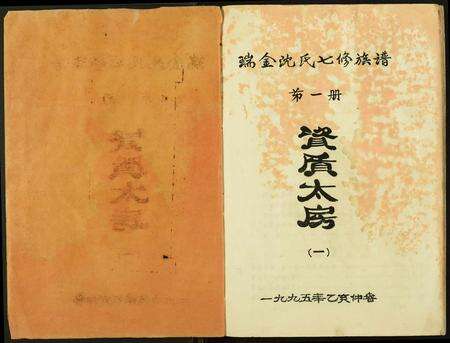 瑞金沈氏七修族谱
第一册
资质太房
(一)
一九九五年乙亥仲春